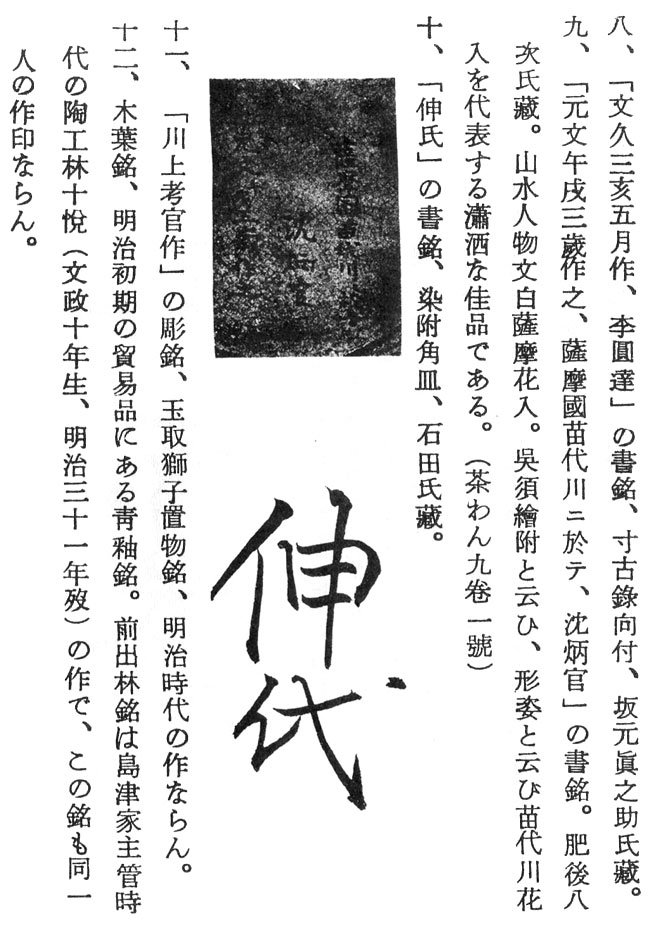 八、「文久三亥五月作、李圓達」の書銘、寸古錄向付、坂元眞之助氏藏。
九、「元文午戌三歲作之、薩摩國苗代川ニ於テ、沈炳官」の書銘。肥後八
次氏藏。山水人物文白薩摩花入。吳須繪附と云ひ、形姿と云ひ苗代川花
入を代表する瀟洒な佳品である。（茶わん九卷一號）
十、「伸氏」の書銘、染附角皿、石田氏藏。
伸代
十一、「川上考官作」の彫銘、玉取獅子置物銘、明治時代の作ならん。
十二、木葉銘、明治初期の貿易品にある靑釉銘。前出林銘は島津家主管時
代の陶工林十悅（文政十年生、明治三十一年歿）の作で、この銘も同一
人の作印ならん。